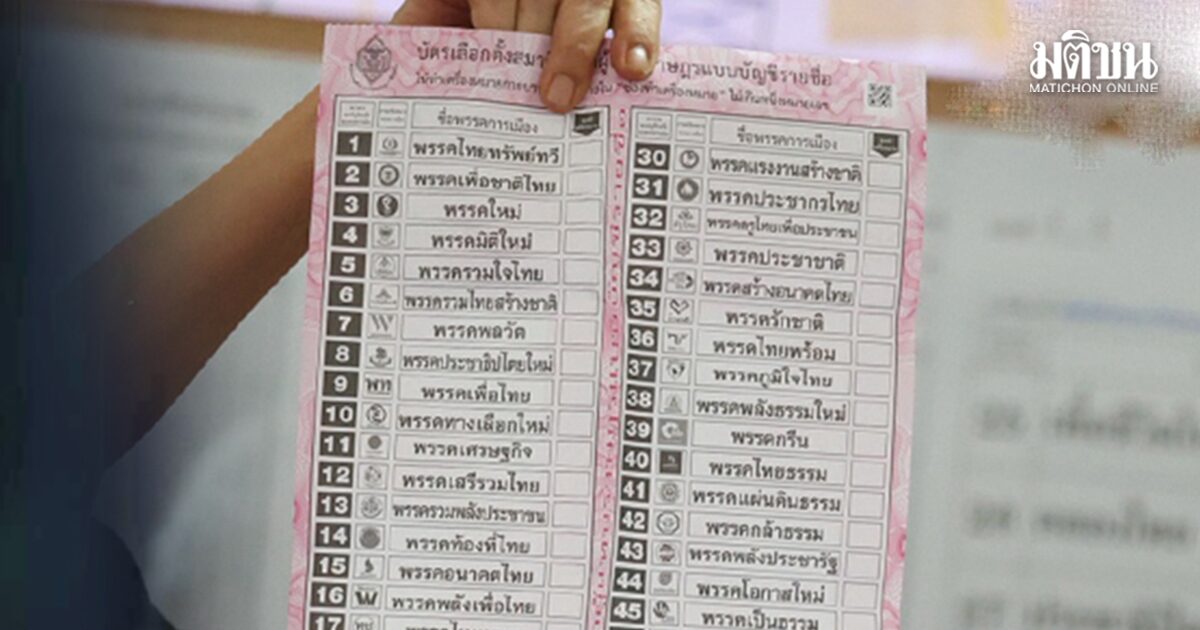 มติชน
MATICHON ONLINE
บัตรเลือกตั้งสมา ษฎรแบบบัญชีรายชื่อ
ชื่อพรรคการเมือง
1 พรรคไทยทรัพย์ทวี
2 พรรคเพื่อชาติไทย
3 พรรคใหม่
4 พรรคมิติใหม่
5 พรรครวมใจไทย
6 พรรครวมไทยสร้างชาติ
7 พรรคพลวัต
8 พรรคประชาธิปไตยใหม่
9 พท พรรคเพื่อไทย
10 พรรคทางเลือกใหม่
11 พรรคเศรษฐกิจ
12 พรรคเสรีรวมไทย
13 พรรครวมพลังประชาชน
14 พรรคท้องที่ไทย
15 พรรคอนาคตไทย
16 พรรคพลังเพื่อไทย
17
ชื่อพรรคการเมือง
30 พรรคแรงงานสร้างชาติ
31 พรรคประชากรไทย
32 พรรคครูไทยเพื่อประชาชน
33 พรรคประชาชาติ
34 พรรคสร้างอนาคตไทย
35 พรรครักชาติ
36 พรรคไทยพร้อม
37 พรรคภูมิใจไทย
38 พรรคพลังธรรมใหม่
39 พรรคกรีน
40 พรรคไทยธรรม
41 พรรคแผ่นดินธรรม
42 พรรคกล้าธรรม
43 พรรคพลังประชารัฐ
44 พรรคโอกาสใหม่
45 พรรคเป็นธรรม